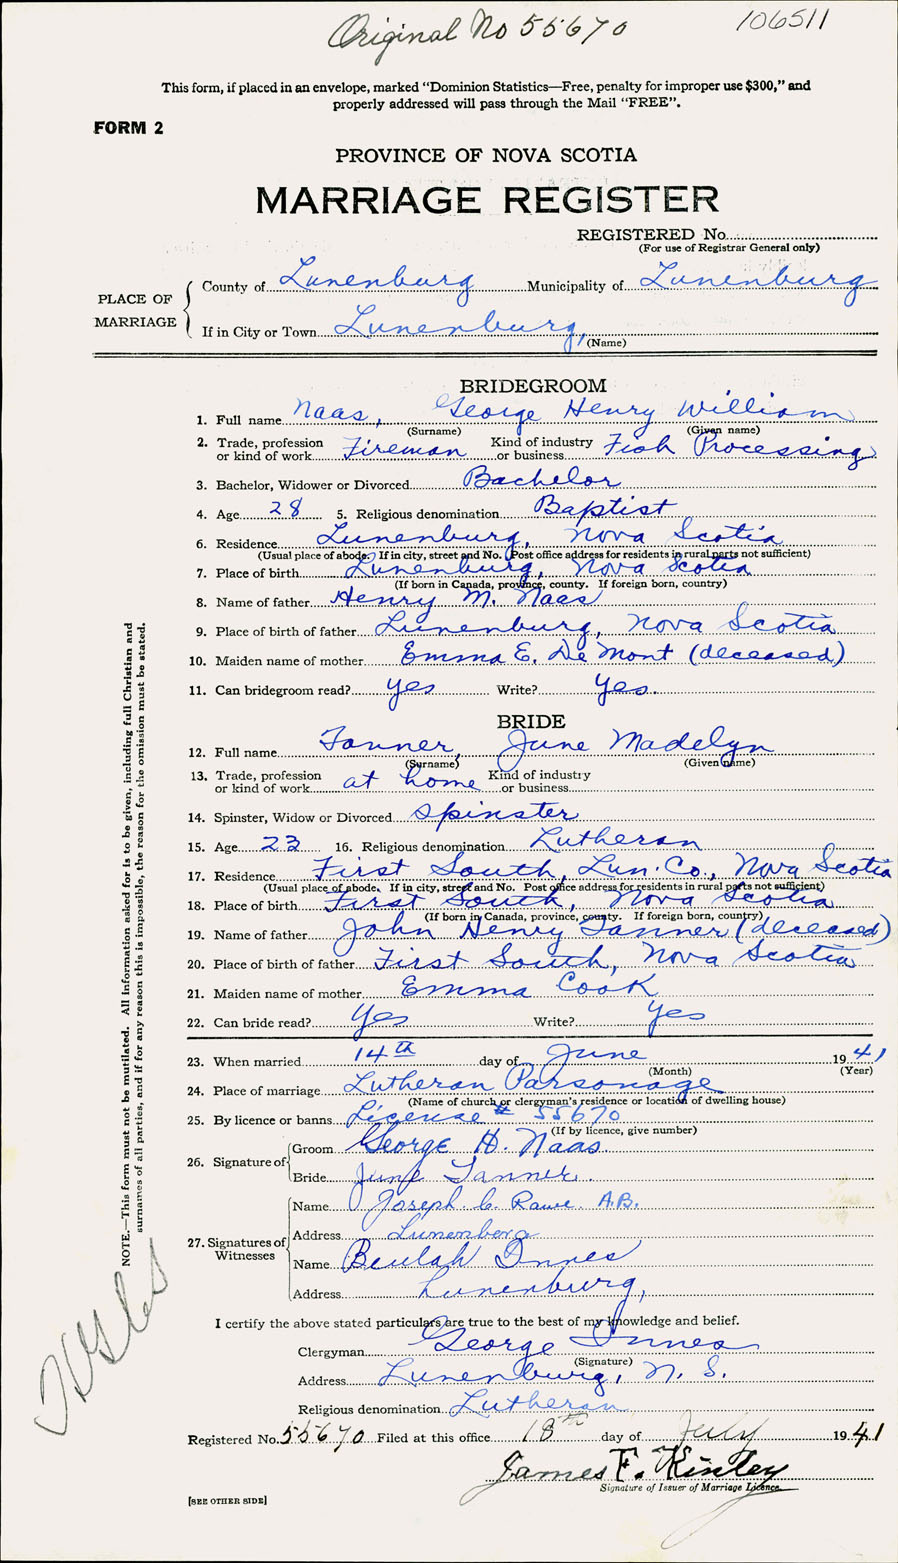 Original No 55670
106511
This form, if placed in an envelope, marked "Dominion Statistics—Free, penalty for improper use $300," and
properly addressed will pass through the Mail "FREE".
FORM 2
PROVINCE OF NOVA SCOTIA
MARRIAGE REGISTER
REGISTERED No.
(For use of Registrar General only)
PLACE OF MARRIAGE
County of Lunenburg Municipality of Lunenburg
If in City or Town Lunenburg,
(Name)
BRIDEGROOM
1. Full name Naas, George Henry William
(Surname) (Given name)
2. Trade, profession or kind of work Fireman Kind of industry or business Fish Processing
3. Bachelor, Widower or Divorced Bachelor
4. Age 28 5. Religious denomination Baptist
6. Residence Lunenburg, Nova Scotia
(Usual place of abode. If in city, street and No. Post office address for residents in rural parts not sufficient)
7. Place of birth Lunenburg, Nova Scotia
(If born in Canada, province, county. If foreign born, country)
8. Name of father Henry M. Naas
9. Place of birth of father Lunenburg, Nova Scotia
10. Maiden name of mother Emma E. De Mont (deceased)
11. Can bridegroom read? yes Write? Yes.
BRIDE
12. Full name Tanner, June Madelyn
(Surname) (Given name)
13. Trade, profession or kind of work at home Kind of industry or business
14. Spinster, Widow or Divorced Spinster
15. Age 23 16. Religious denomination Lutheran
17. Residence First South, Lun. Co., Nova Scotia
(Usual place of abode. If in city, street and No. Post office address for residents in rural parts not sufficient)
18. Place of birth First South, Nova Scotia
(If born in Canada, province, county. If foreign born, country)
19. Name of father John Henry Tanner (deceased)
20. Place of birth of father First South, Nova Scotia
21. Maiden name of mother Emma Cook
22. Can bride read? Yes Write? Yes
23. When married 14th day of June 1941
(Month) (Year)
24. Place of marriage Lutheran Parsonage
(Name of church or clergyman's residence or location of dwelling house)
25. By licence or banns License # 55670
(If by licence, give number)
26. Signature of Groom George H. Naas.
Bride June Tanner.
27. Signatures of Witnesses
Name Joseph C. A.B.
Address Lunenburg
Name Beulah Innes
Address Lunenburg,
I certify the above stated particulars are true to the best of my knowledge and belief.
Clergyman George Innes
(Signature)
Address Lunenburg, N. S.
Religious denomination Lutheran
Registered No. 55670 Filed at this office 18th day of July 1941
James F. Kinley
Signature of Issuer of Marriage Licence.
[SEE OTHER SIDE]
NOTE.—This form must not be mutilated. All information asked for is to be given, including full Christian and
surnames of all parties, and if for any reason this is impossible, the reason for the omission must be stated.